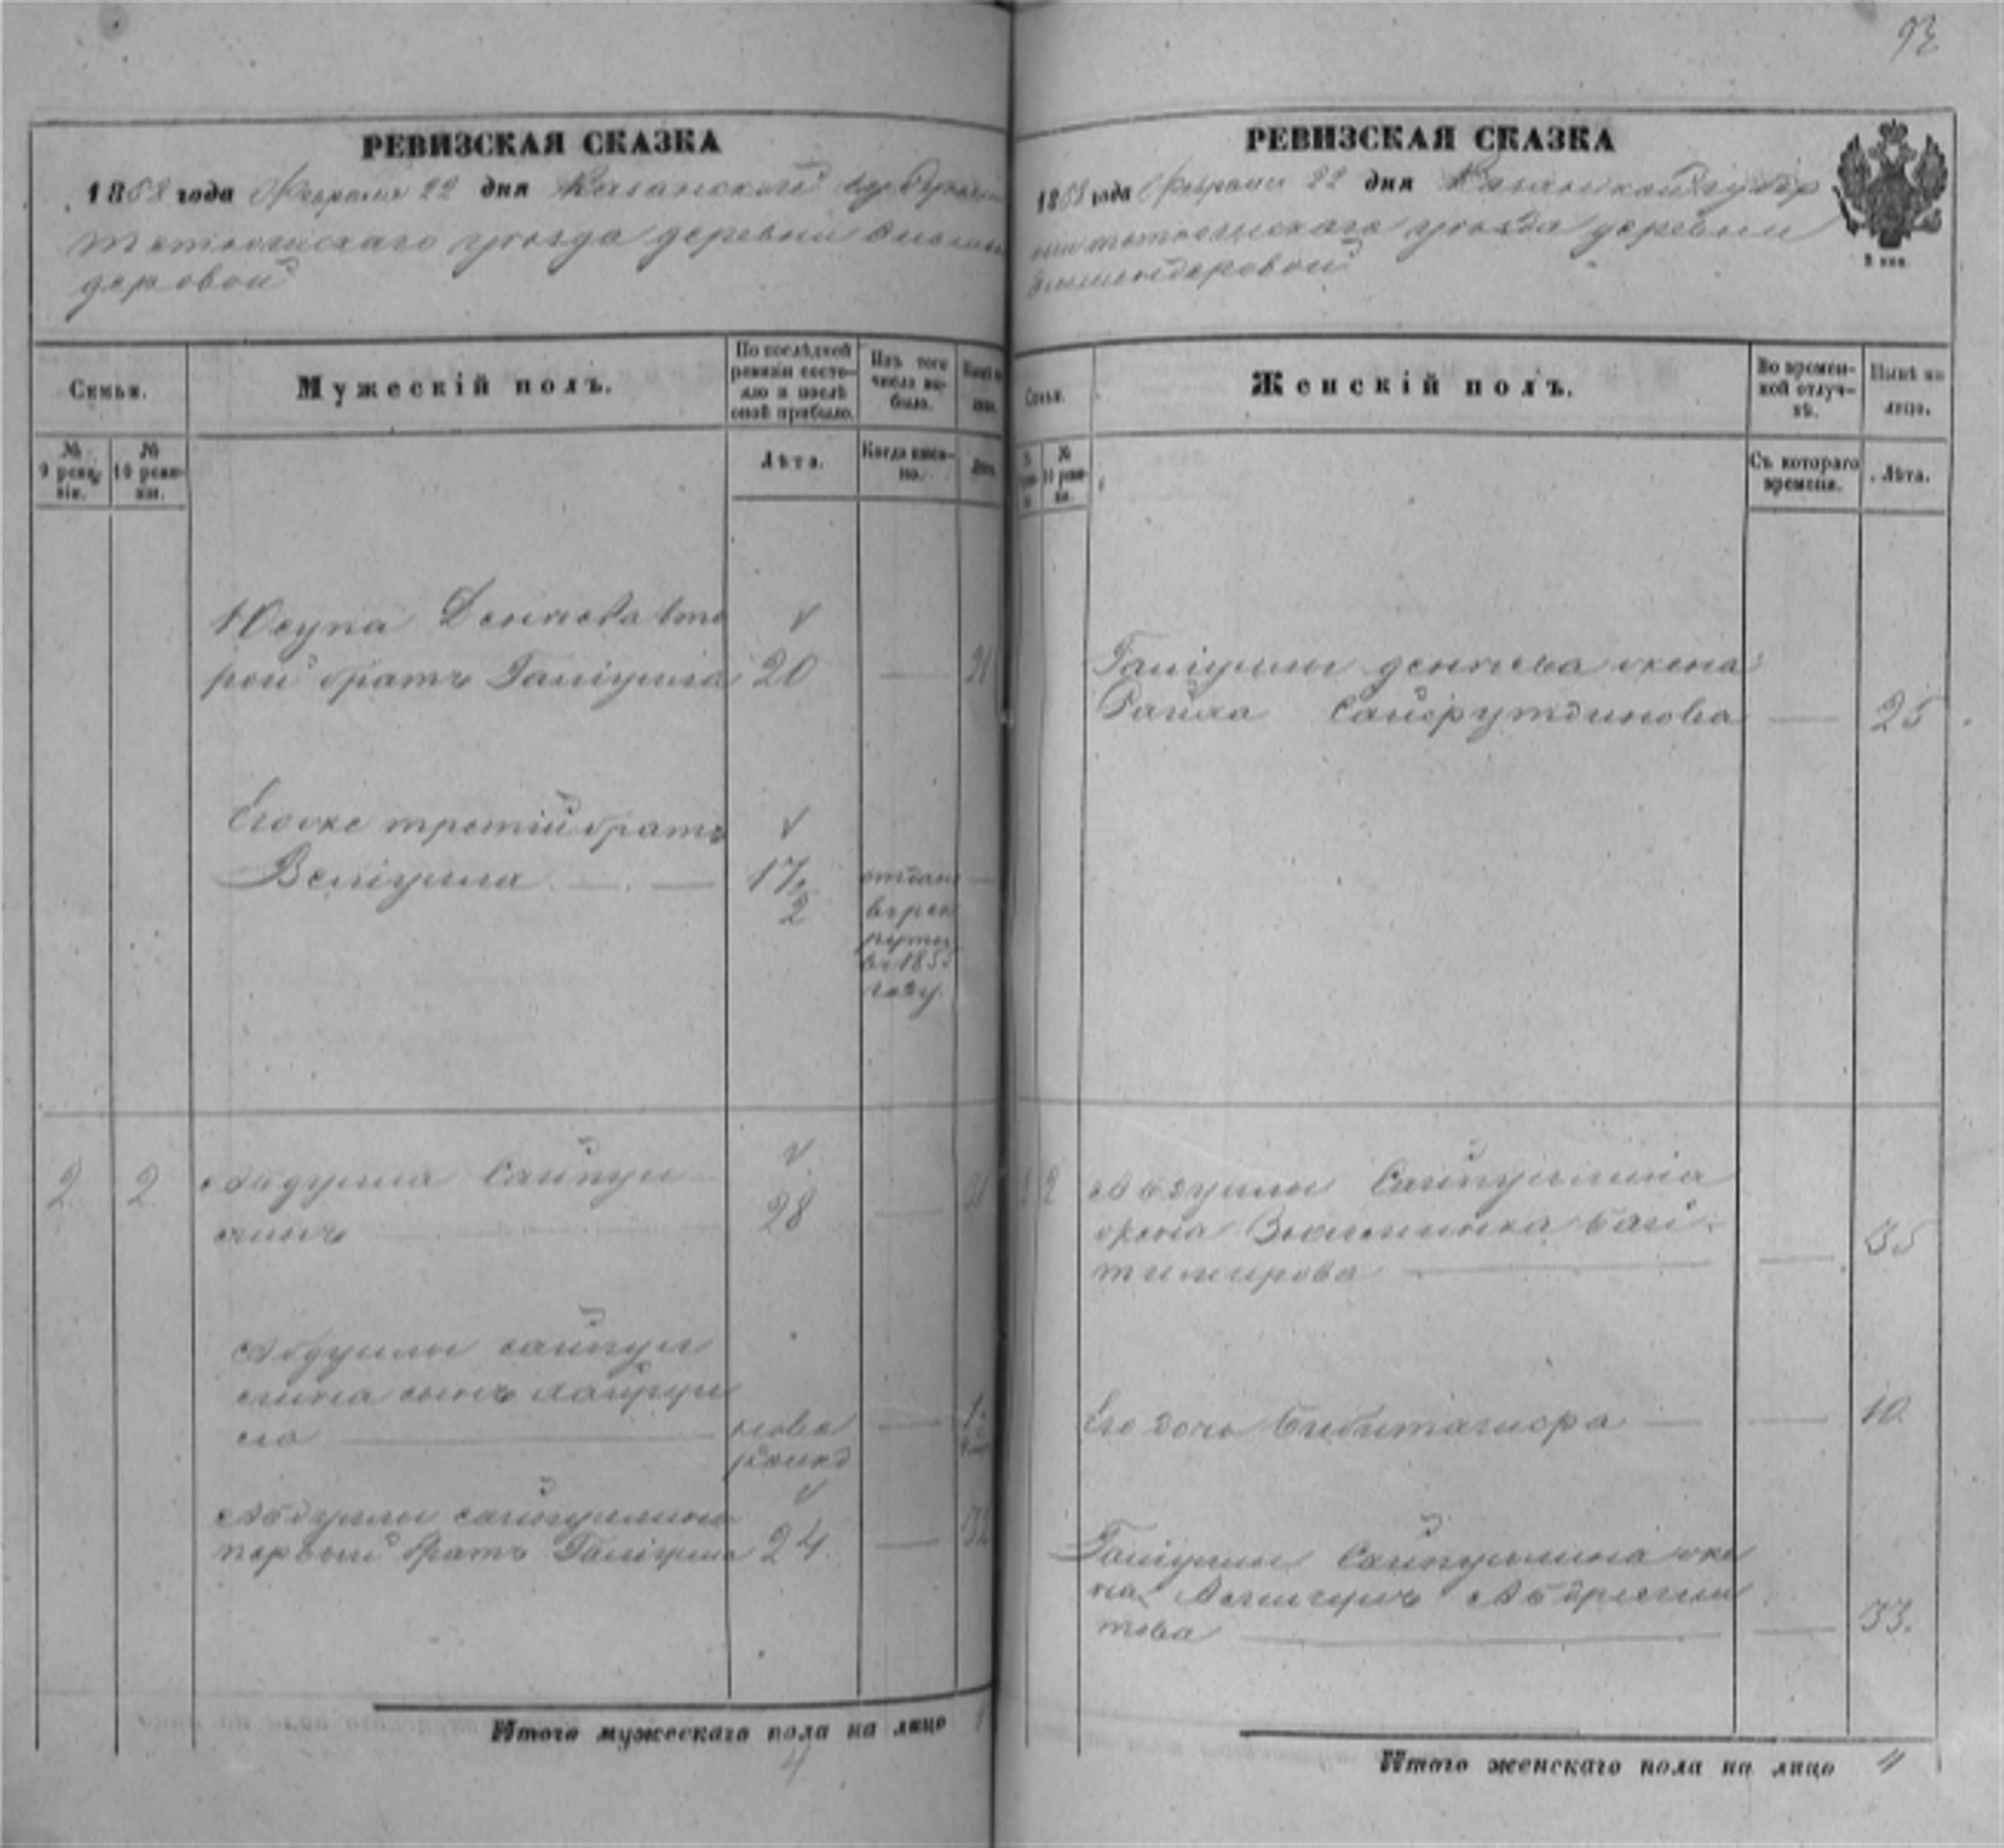 93
РЕВИЗСКАЯ СКАЗКА
1858 года Февраля 22 дня Казанской
Тетюшскаго уѣзда деревни
деровой
Семьи.
Мужескій полъ.
По послѣдней ревизіи состояло и послѣ оной прибыло.
Изъ того числа выбыло.
№ 9 ревизіи.
№ 10 ревизіи.
Лѣта.
Когда именно.
Юсупа Денѣева вто
рой братъ Галіулла 20 —
Его же третій братъ
Веліулла — — 17
2
отдан
въ рек
руты
въ 1855
году.
2 2 Абдулла Сайпул
линъ 28 —
Абдуллы сайпул
лина сынъ Хайрул
ла — ново рожд —
Абдуллы сайпуллина
первый братъ Галіулла 24 — 32
Итого мужескаго пола на лицо
4
РЕВИЗСКАЯ СКАЗКА
1858 года Февраля 22 дня Казанской губер
ніи Тетюшскаго уѣзда деревни
8 коп.
Семьи.
Женскій полъ.
Во временной отлучкѣ.
Нынѣ на лицо.
№ 10 ревизіи.
Съ котораго времени.
Лѣта.
Галіуллы денѣева жена
Сайфутдинова — 25
2 Абдуллы Сайпуллина
жена Бай
тимирова — 35
Его дочь — — 10
Галіуллы Сайпуллина же
на
това — — 33.
Итого женскаго пола на лицо 4